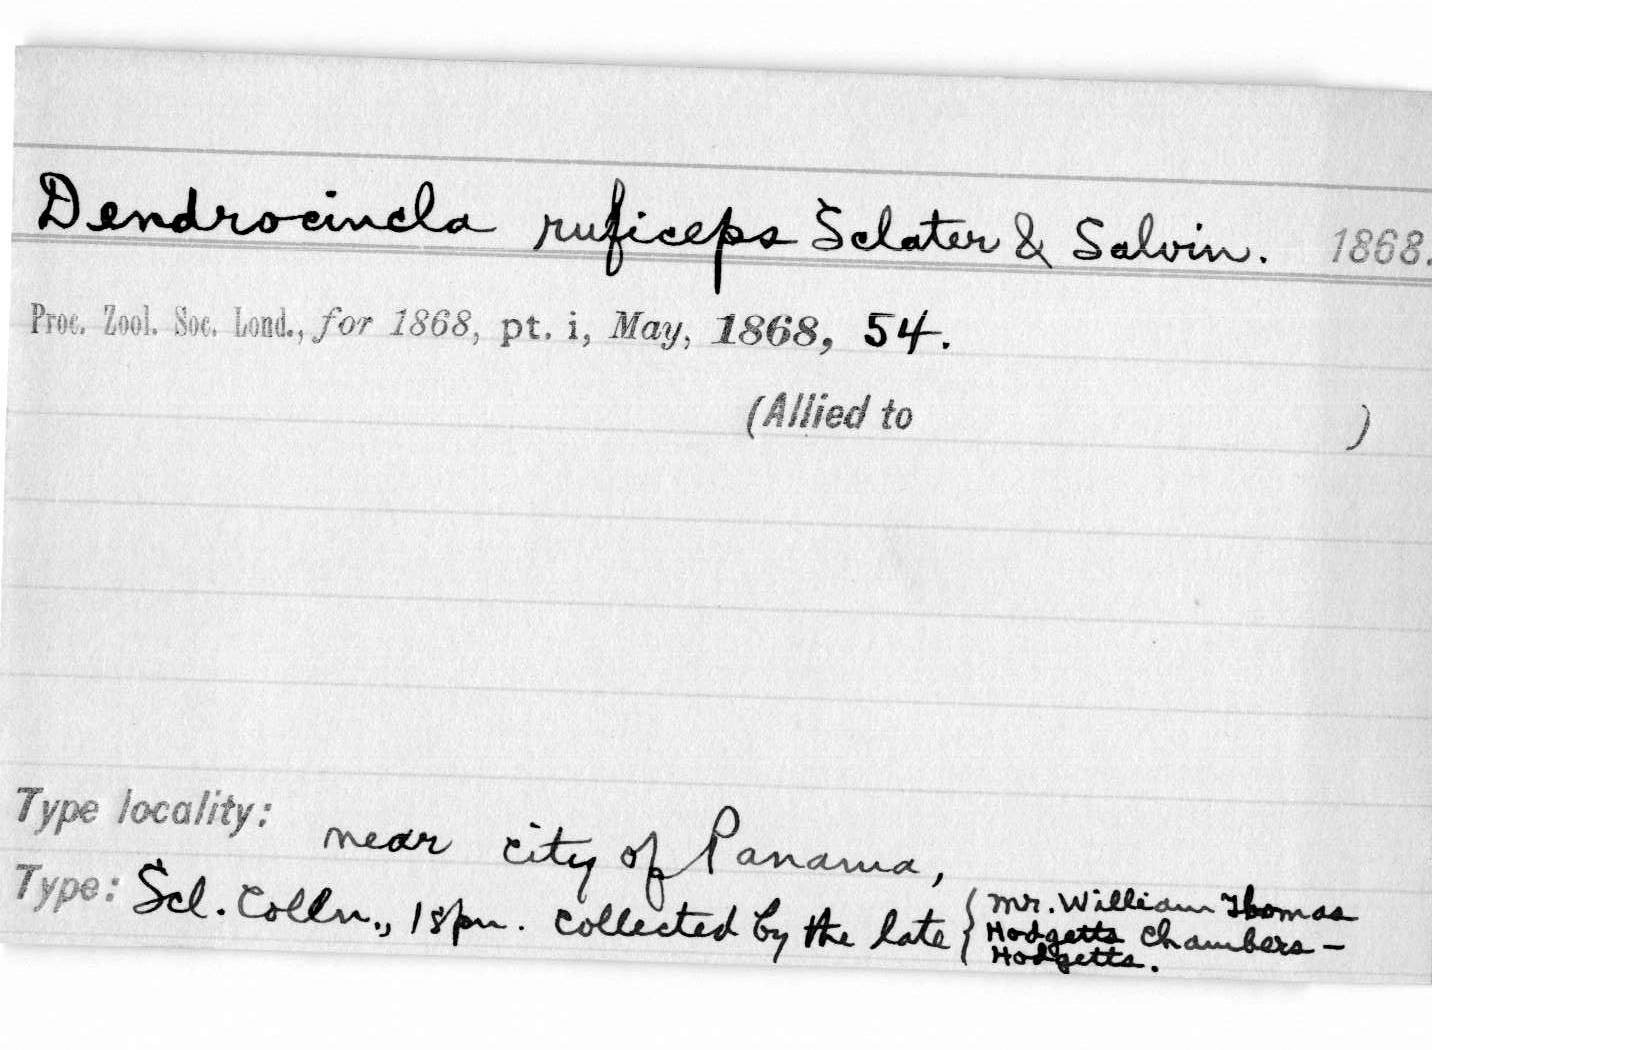 Dendrocincla ruficeps Sclater & Salvin. 1868.
Proc. Zool. Soc. Lond., for 1868, pt. i, May, 1868, 54.
(Allied to )
Type locality: near city of Panama,
Type: Scl. Colln., 1 spn. collected by the late { Mr. William Thomas
Hodgetts Chambers-
Hodgetts.